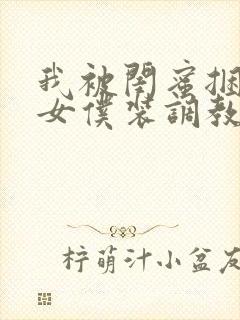 我被閨蜜捆
女僕裝調教
柠萌汁小盆友